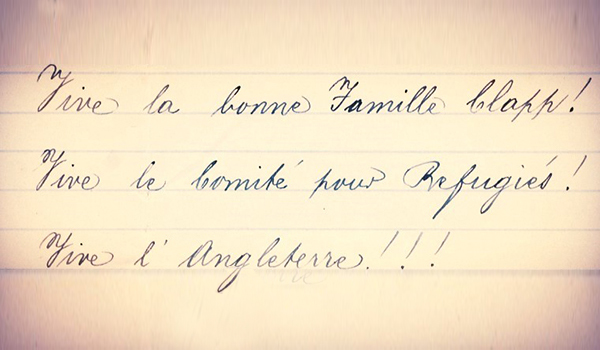 Vive la bonne Famille Clapp!
Vive le Comité pour Refugiés!
Vive l'Angleterre!!!